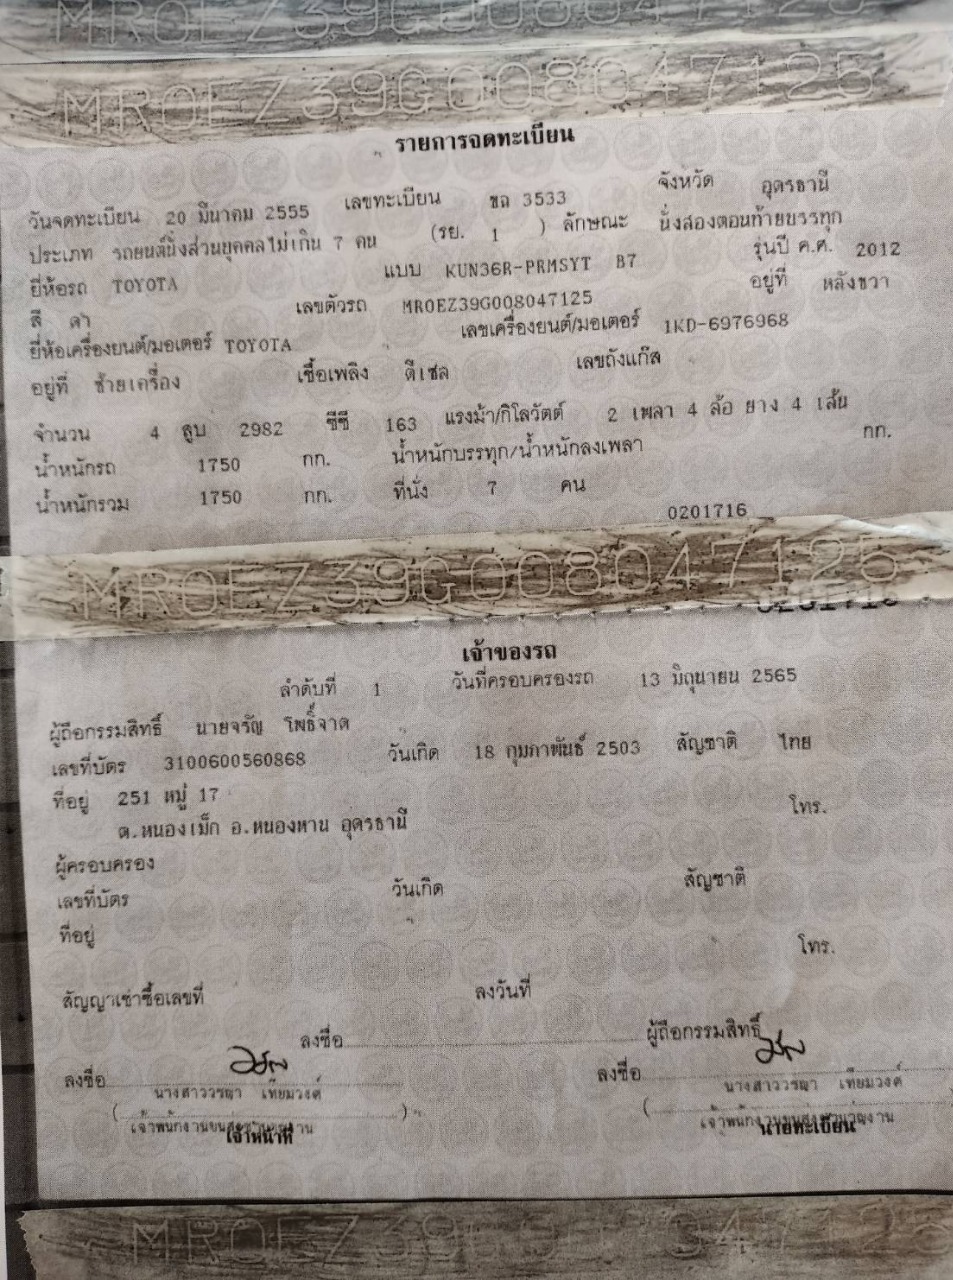 MR0EZ39G008047125
MR0EZ39G008047125
รายการจดทะเบียน
วันจดทะเบียน 20 มีนาคม 2555 เลขทะเบียน ขฉ 3533 จังหวัด อุดรธานี
ประเภท รถยนต์นั่งส่วนบุคคลไม่เกิน 7 คน (รย. 1 ) ลักษณะ นั่งสองตอนท้ายบรรทุก
ยี่ห้อรถ TOYOTA แบบ KUN36R-PRMSYT B7 รุ่นปี ค.ศ. 2012
สี ดำ เลขตัวรถ MR0EZ39G008047125 อยู่ที่ หลังขวา
ยี่ห้อเครื่องยนต์/มอเตอร์ TOYOTA เลขเครื่องยนต์/มอเตอร์ 1KD-6976968
อยู่ที่ ซ้ายเครื่อง เชื้อเพลิง ดีเซล เลขถังแก๊ส
จำนวน 4 สูบ 2982 ซีซี 163 แรงม้า/กิโลวัตต์ 2 เพลา 4 ล้อ ยาง 4 เส้น
น้ำหนักรถ 1750 กก. น้ำหนักบรรทุก/น้ำหนักลงเพลา กก.
น้ำหนักรวม 1750 กก. ที่นั่ง 7 คน
0201716
MR0EZ39G008047125
0201716
เจ้าของรถ
ลำดับที่ 1 วันที่ครอบครองรถ 13 มิถุนายน 2565
ผู้ถือกรรมสิทธิ์ นายจรัญ โพธิ์จาด
เลขที่บัตร 3100600560868 วันเกิด 18 กุมภาพันธ์ 2503 สัญชาติ ไทย
ที่อยู่ 251 หมู่ 17
ต.หนองเม็ก อ.หนองหาน อุดรธานี โทร.
ผู้ครอบครอง
เลขที่บัตร วันเกิด สัญชาติ
ที่อยู่ โทร.
สัญญาเช่าซื้อเลขที่ ลงวันที่
ลงชื่อ ผู้ถือกรรมสิทธิ์
ลงชื่อ ลงชื่อ
นางสาววรญา เทียมวงศ์ นางสาววรญา เทียมวงศ์
( ) (
เจ้าพนักงานขนส่งชำนาญงาน เจ้าพนักงานขนส่งชำนาญงาน
เจ้าหน้าที่ นายทะเบียน